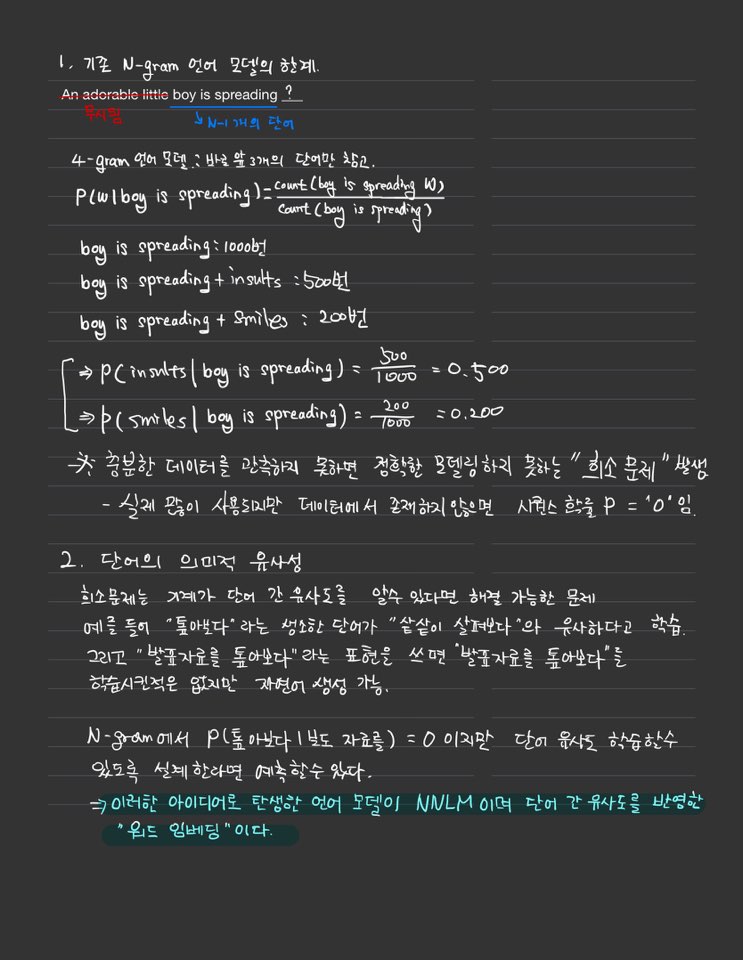 1. 기존 N-gram 언어 모델의 한계.
An adorable little boy is spreading ?
무시됨
↳ N-1개의 단어
4-gram 언어 모델 : 바로 앞 3개의 단어만 참고.
P(w|boy is spreading) = count(boy is spreading w) / count(boy is spreading)
boy is spreading : 1000번
boy is spreading + insults : 500번
boy is spreading + smiles : 200번
⇒ P(insults | boy is spreading) = 500/1000 = 0.500
⇒ P(smiles | boy is spreading) = 200/1000 = 0.200
→※ 충분한 데이터를 관측하지 못하면 정확한 모델링하지 못하는 "희소 문제" 발생
- 실제 많이 사용되지만 데이터에서 존재하지 않으면 시퀀스 확률 P = '0' 임.
2. 단어의 의미적 유사성
희소문제는 기계가 단어 간 유사도를 알수 있다면 해결 가능한 문제
예를 들어 "톺아보다"라는 생소한 단어가 "샅샅이 살펴보다"와 유사하다고 학습.
그리고 "발표자료를 톺아보다"라는 표현을 쓰면 "발표자료를 톺아보다"를
학습시킨적은 없지만 자연어 생성 가능.
N-gram에서 P(톺아보다 | 보도 자료를) = 0 이지만 단어 유사도 학습할수
있도록 설계한다면 예측할수 있다.
⇒ 이러한 아이디어로 탄생한 언어 모델이 NNLM 이며 단어 간 유사도를 반영한
"워드 임베딩"이다.